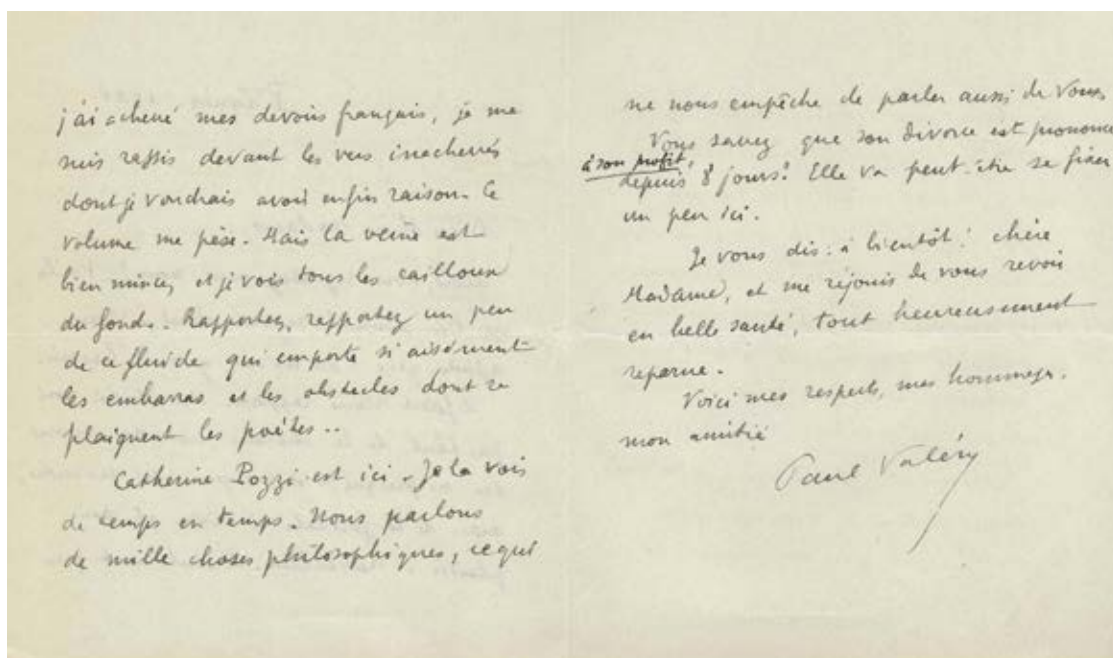 j'ai achevé mes devoirs français, je me
suis rassis devant les vers inachevés
dont je voudrais avoir enfin raison. Ce
volume me pèse. Mais la veine est
bien mince, et je vois tous les cailloux
du fond. Rapportez, rapportez un peu
de ce fluide qui emporte si aisément
les embarras et les obstacles dont se
plaignent les poètes..
Catherine Pozzi est ici. Je la vois
de temps en temps. Nous parlons
de mille choses philosophiques, ce qui
ne nous empêche de parler aussi de Vous.
Vous savez que son divorce est prononcé
à son profit,
depuis 8 jours! Elle va peut-être se fixer
un peu ici.
Je vous dis: à bientôt! chère
Madame, et me réjouis de vous revoir
en belle santé, tout heureusement
reparue.
Voici mes respects, mes hommages.
mon amitié
Paul Valéry